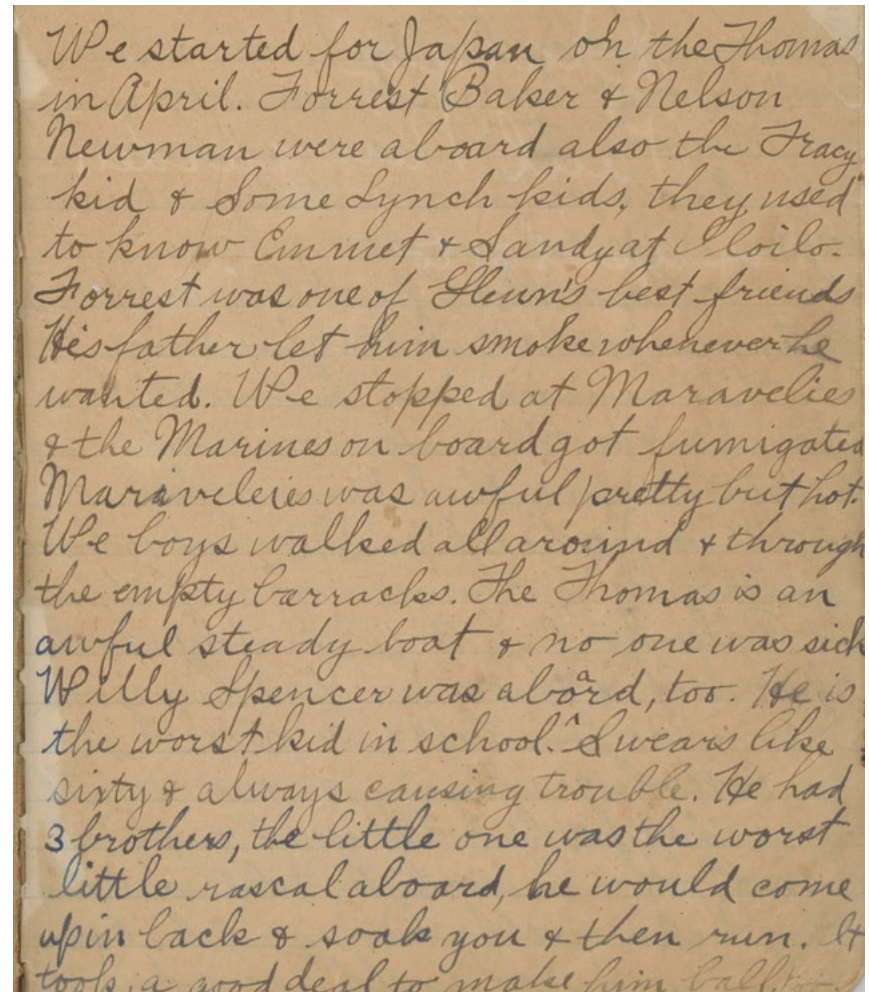 We started for Japan on the Thomas
in April. Forrest Baker & Nelson
Newman were aboard also the Tracy
kid & Some Lynch kids, they used
to know Emmet & Sandy at Iloilo.
Forrest was one of Glenn's best friends
His father let him smoke whenever he
wanted. We stopped at Maravelies
& the Marines on board got fumigated
Maraveleies was awful pretty but hot.
We boys walked all around & through
the empty barracks. The Thomas is an
awful steady boat & no one was sick
Willy Spencer was aboard, too. He is
the worst kid in school. Swears like
sixty & always causing trouble. He had
3 brothers, the little one was the worst
little rascal aboard, he would come
up in back & soak you & then run. It
took a good deal to make him